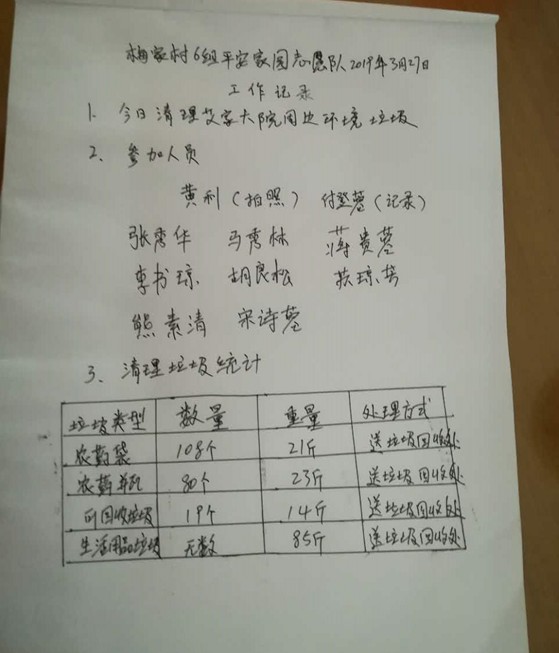 梅家村6组平安家园志愿队2019年3月27日
工作记录
1、今日清理艾家大院周边环境垃圾
2、参加人员
黄利（拍照） 付登蓉（记录）
张秀华 马秀林 蒋贵蓉
李书琼 胡良松
熊素清 宋诗蓉
3、清理垃圾统计
垃圾类型 数量 重量 处理方式
农药袋 108个 21斤 送垃圾回收处
农药瓶 80个 23斤 送垃圾回收处
可回收垃圾 19个 14斤 送垃圾回收处
生活用品垃圾 无数 85斤 送垃圾回收处